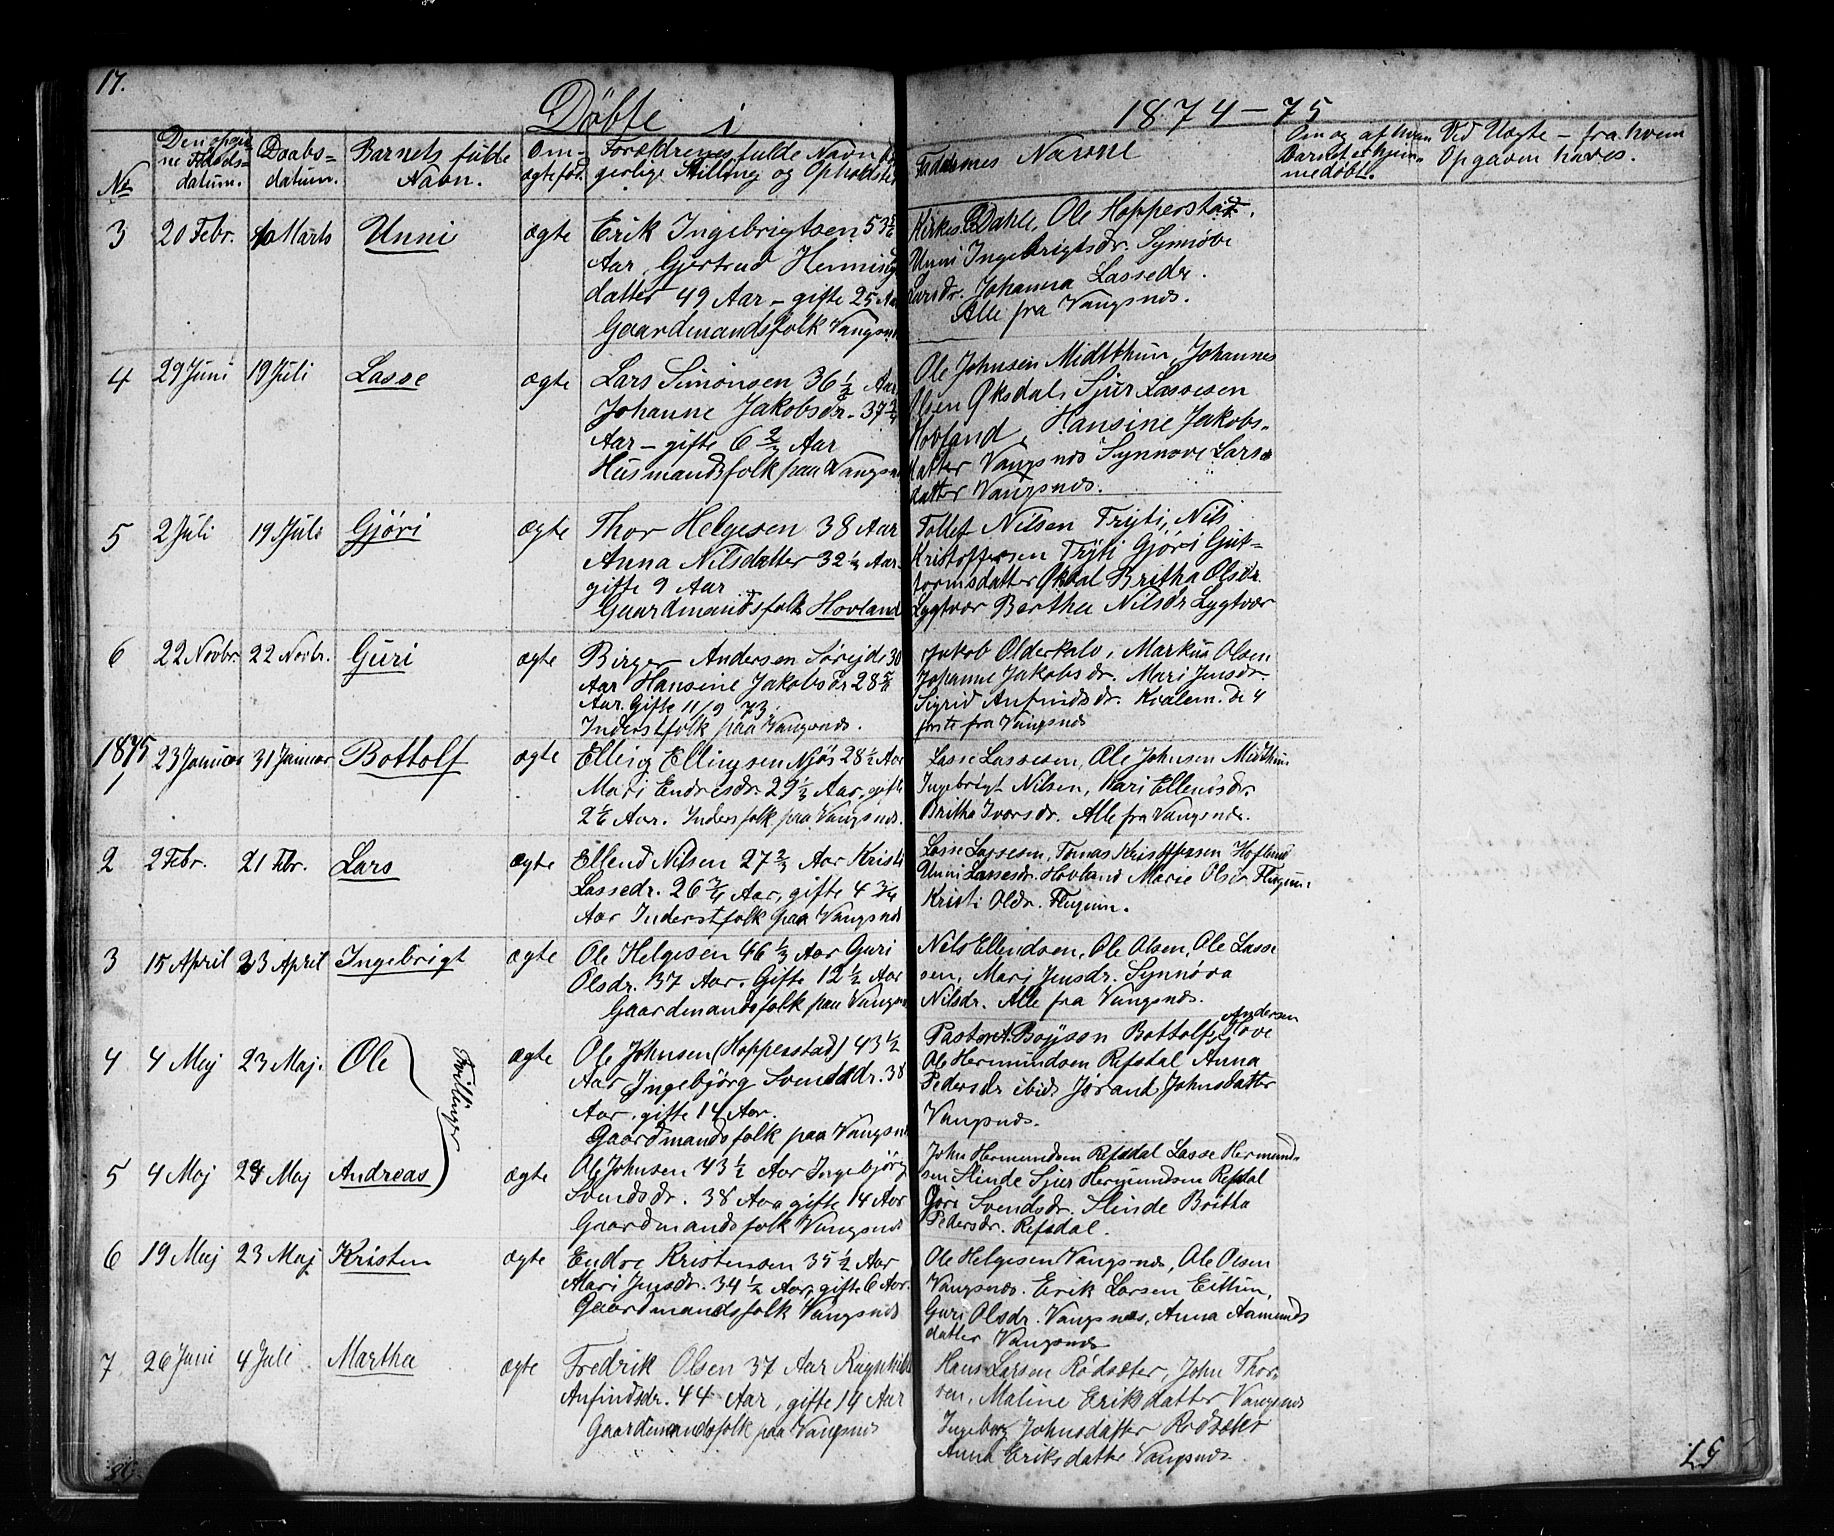 17.
Döbte i 1874–75
No
Den opgivne Fødselsdatum.
Daabsdatum.
Barnets fulde Navn.
Om ægtefød.
Forældrenes fulde Navn, borgerlige Stilling og Opholdsted
Faddernes Navne
Om og af hvem Barnet er hjemmedøbt.
Ved Uægte – fra hvem Opgaven haves.
3 20 Febr. Marts Unni ægte
Erik Ingebrigtsen 53½
Aar, Gjertrud Hennings
datter 49 Aar – gifte 25 Aar
Gaardmandsfolk Vangsnes
Dahle, Ole Hopperstad.
Unni Ingebrigtsdr. Synnöve
Larsdr. Johanna Lassedr.
Alle fra Vangsnes.
4 29 Juni 19 Juli Lasse ægte
Lars Simonsen 36½ Aar,
Johanne Jakobsdr. 37
Aar – gifte 6 ⅔ Aar
Husmandsfolk paa Vangsnes
Ole Johnsen Midtthun, Johannes
Olsen Øksdal, Sjur Lassesen
Hovland, Hansine Jakobs-
datter Vangsnes Synnove Lars-
datter Vangsnes.
5 2 Juli 19 Juli Gjöri ægte
Thor Helgesen 38 Aar
Anna Nilsdatter 32 ⅓ Aar.
gifte 9 Aar
Gaardmandsfolk Hovland
Tollef Nilsen Tryti, Nils
Kristoffersen Tryti Gjöri Gut-
tormsdatter Britha Olsdr.
Lygtvor Bertha Nilsdr Lygtvor
6 22 Novbr. 22 Novbr. Guri ægte
Birger Andersen Sörejde 30
Aar Hansine Jakobsdr 28
Aar. Gifte 11/9 73.
Inderstfolk paa Vangsnes.
Jakob Olderkalv, Markus Olsen
Johanne Jakobsdr. Mari Jensdr.
Sigrid Anfindsdr. Kvalem. De 4
första fra Vangsnes
1875
1 23 Januar 31 Januar Bottolf ægte
Elling Ellingsen Njös 28½ Aar
Mari Endresdr. 29 ⅓ Aar, gifte
2⅙ Aar. Indersfolk paa Vangsnes.
Lasse Lassesen, Ole Johnsen Midthun
Ingebrigt Nilsen, Kari Ellendsdr.
Britha Ivarsdr. Alle fra Vangsnes.
2 2 Febr. 21 Febr. Lars ægte
Ellend Nilsen 27 ⅔ Aar Kristi
Lassedr. 26 Aar, gifte 4 ¾
Aar Inderstfolk paa Vangsnes
Lasse Lassesen, Tomas Kristoffersen Hofland
Unni Lassesdr. Hovland Marie Olsdr Flugum.
Kristi Olsdr. Flugum.
3 15 April 23 April Ingebrigt ægte
Ole Helgesen 46 ⅓ Aar Guri
Olsdr. 37 Aar. Gifte 12 ½ Aar
Gaardmandsfolk paa Vangsnes
Nils Ellendsen, Ole Olsen, Ole Lasse
sen, Mari Jensdr. Synnöva
Nilsdr. Alle fra Vangsnes.
4 4 Maj 23 Maj. Ole ægte
Tvillinger
Ole Johnsen (Hopperstad) 43 ½
Aar Ingebjörg Svendsdr. 38
Aar, gifte 14 Aar.
Gaardmandsfolk paa Vangsnes
Andersen
Pastor Boyson Bottolf Hove
Ole Hermundsen Refsdal Anna
Pedersdr ibid. Jorand Johnsdatter
Vangsnes.
5 4 Maj 24 Maj Andreas ægte
Ole Johnsen 43 ½ Aar Ingebjörg
Svendsdr. 38 Aar gifte 14 Aar
Gaardmandsfolk Vangsnes
John Hermundsen Refsdal Lasse Hermund-
sen Slinde Sjur Hermundsen Refsdal
Göri Svendsdr. Slinde Britha
Pedersdr. Refsdal.
6 19 Maj 23 Maj Kristen ægte
Endre Kristensen 35 ½ Aar
Mari Jensdr. 34 ½ Aar, gifte 6 Aar.
Gaardmandsfolk Vangsnes
Ole Helgesen Vangsnes, Ole Olsen
Vangsnes. Erik Larsen Eithun,
Guri Olsdr. Vangsnes, Anna Aamunds
datter Vangsnes
7 26 Juni 4 Juli. Martha ægte
Fredrik Olsen 37 Aar Ragnhild
Anfindsdr. 44 Aar, gifte 14 Aar
Gaardmandsfolk paa Vangsnes
Hans Larsen Rödsæter, John Thor-
sen, Maline Eriksdatter Vangsnes
Ingeborg Johnsdatter Rödsæter
Anna Eriksdatter Vangsnes.